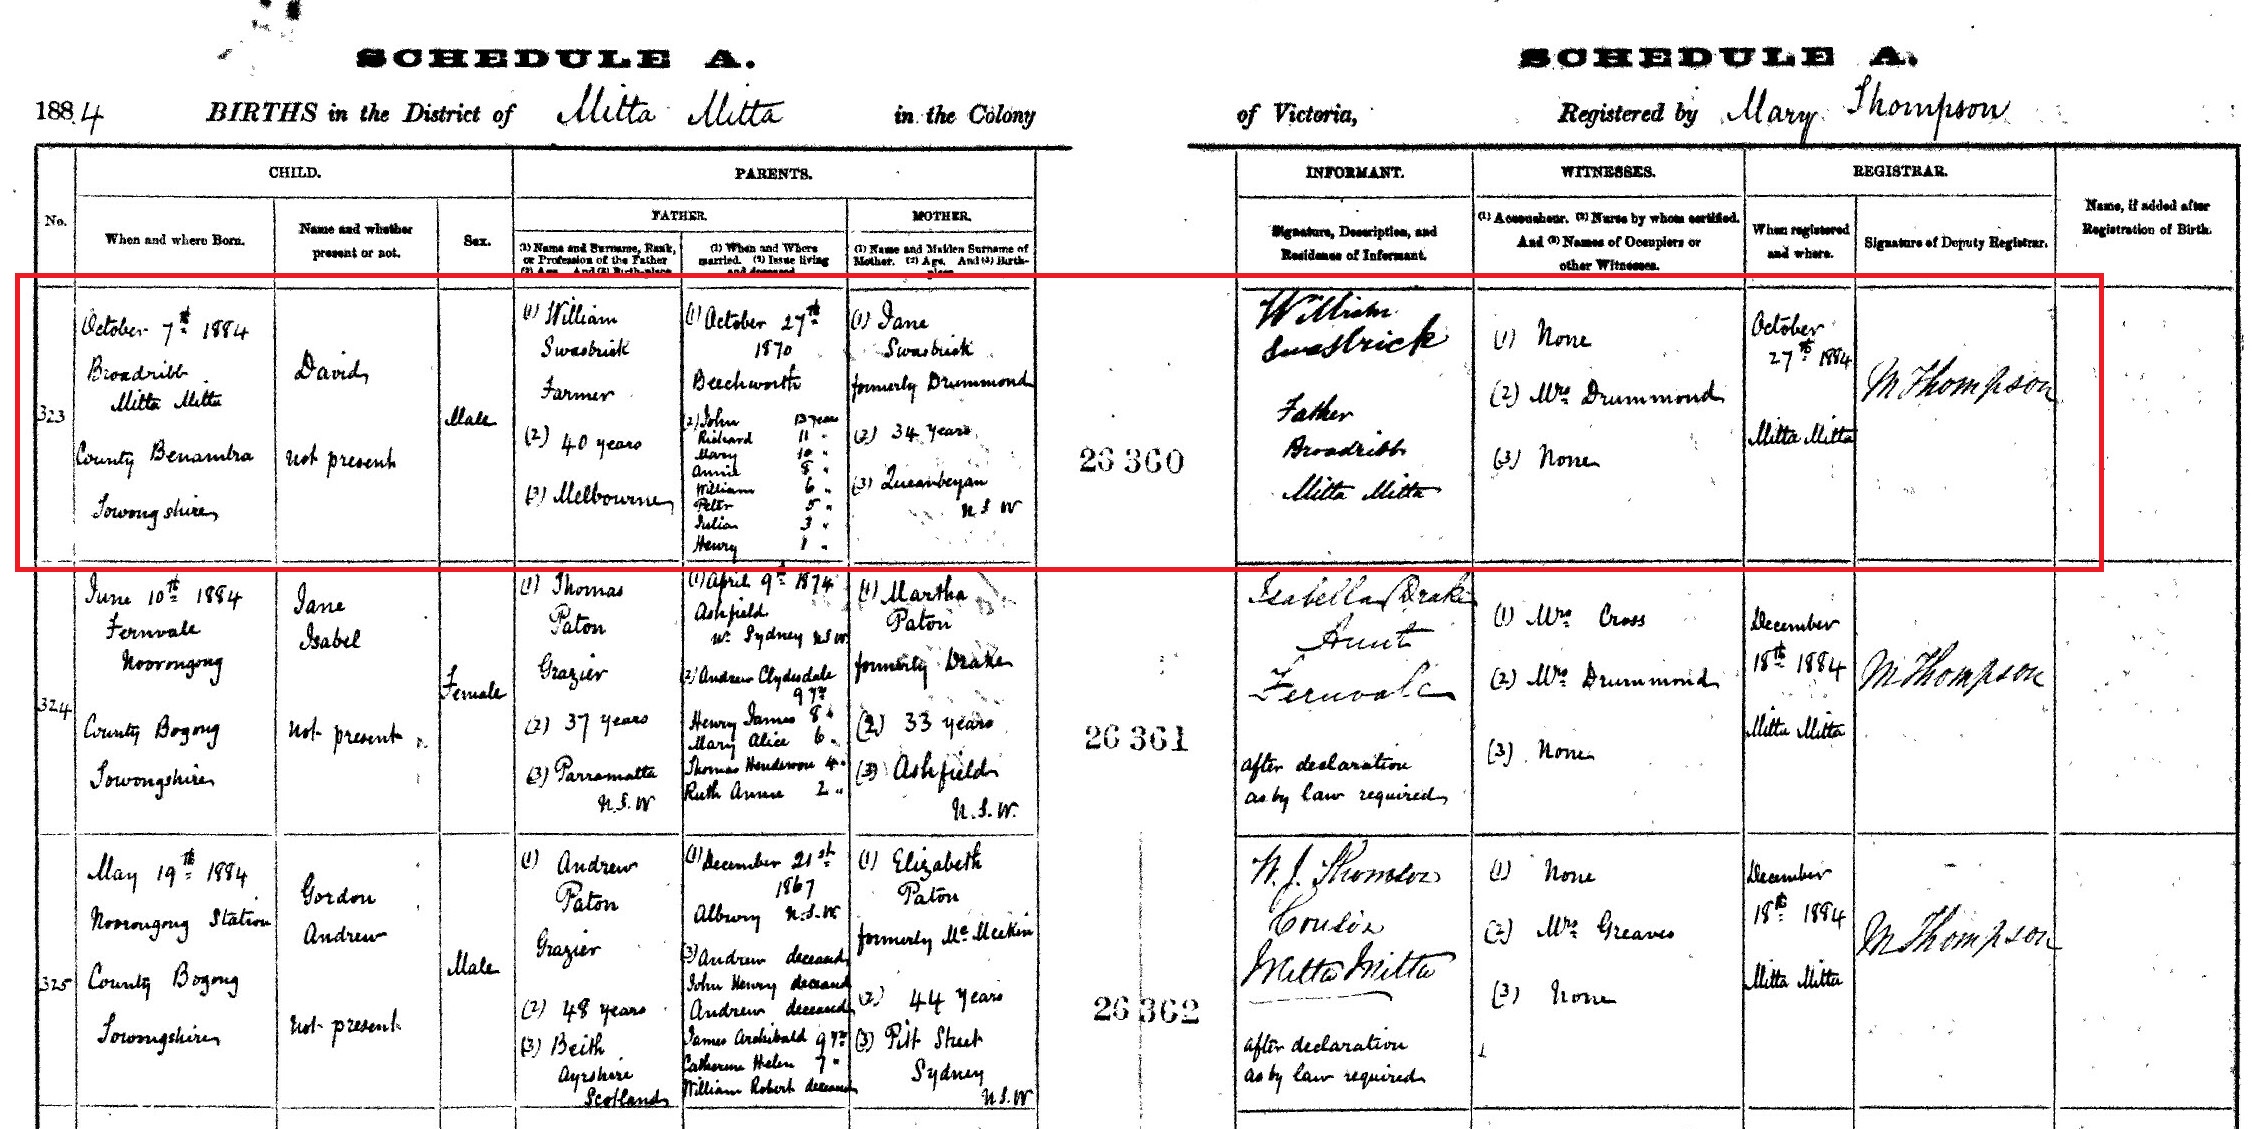 SCHEDULE A.
SCHEDULE A.
1884 BIRTHS in the District of Mitta Mitta in the Colony
of Victoria, Registered by Mary Thompson
No.
CHILD.
When and where Born.
Name and whether
present or not.
Sex.
PARENTS.
FATHER.
(1) Name and Surname, Rank,
or Profession of the Father
(2) Age. And (3) Birth-place
(1) When and Where
married. (2) Issue living
and deceased
MOTHER.
(1) Name and Maiden Surname of
Mother. (2) Age. And (3) Birth-
place
INFORMANT.
Signature, Description, and
Residence of Informant.
WITNESSES.
(1) Accoucheur. (2) Nurse by whom certified.
And (3) Names of Occupiers or
other Witnesses.
REGISTRAR.
When registered
and where.
Signature of Deputy Registrar.
Name, if added after
Registration of Birth.
323
October 7th 1884
Broadribb
Mitta Mitta
County Benambra
Towong shire
David
not present
Male
(1) William
Swasbrick
Farmer
(2) 40 years
(3) Melbourne
(1) October 27th
1870
Beechworth
(2) John 13 years
Richard 11 "
Mary 10 "
Annie 8 "
William 6 "
Peter 5 "
Julian 3 "
Henry 1 "
(1) Jane
Swasbrick
formerly Drummond
(2) 34 years
(3) Queanbeyan
N.S.W
26360
William
Swasbrick
Father
Broadribb
Mitta Mitta
(1) None
(2) Mrs Drummond
(3) None
October
27th 1884
Mitta Mitta
M Thompson
324
June 10th 1884
Fernvale
Noorongong
County Bogong
Towongshire
Jane
Isabel
Not present
Female
(1) Thomas
Paton
Grazier
(2) 37 years
(3) Parramatta
N.S.W
(1) April 9th 1874
Ashfield
nr Sydney NSW
(2) Andrew Clydesdale
9 yrs
Henry James 8 "
Mary Alice 6 "
Thomas Henderson 4 "
Ruth Annie 2 "
(1) Martha
Paton
formerly Drake
(2) 33 years
(3) Ashfield
N.S.W.
26361
Isabella Drake
Aunt
Fernvale
after declaration
as by law required
(1) Mrs Cross
(2) Mrs Drummond
(3) None
December
18th 1884
Mitta Mitta
M Thompson
325
May 19th 1884
Noorongong Station
County Bogong
Towongshire
Gordon
Andrew
Not present
Male
(1) Andrew
Paton
Grazier
(2) 48 years
(3) Beith
Ayrshire
Scotland
(1) December 21st
1867
Albury N.S.W
(3) Andrew deceased
John Henry deceased
Andrew deceased
James Archibald 9 yrs
Catherine Helen 7 "
William Robert deceased
(1) Elizabeth
Paton
formerly McMeekin
(2) 44 years
(3) Pitt Street
Sydney
N.S.W
26362
W. J. Thomson
Cousin
Mitta Mitta
after declaration
as by law required
(1) None
(2) Mrs Greaves
(3) None
December
18th 1884
Mitta Mitta
M Thompson